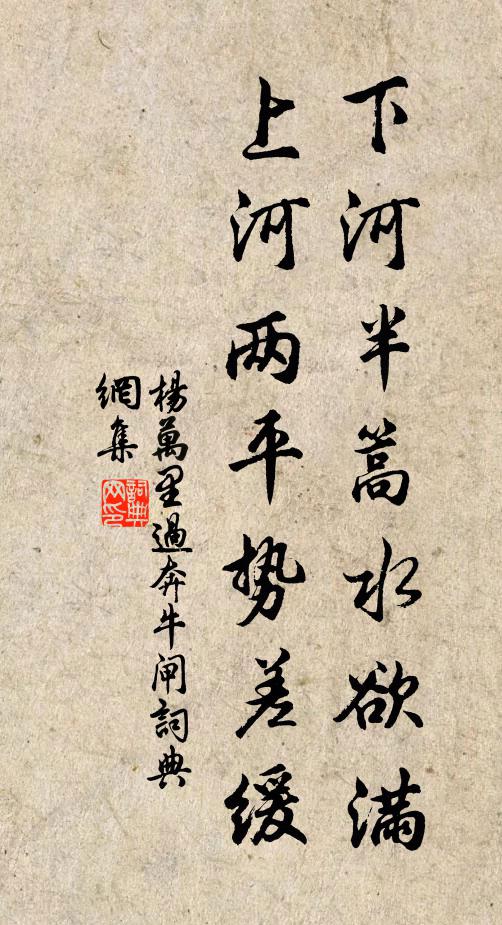 下河半篙水欲满
上河两平势差缓
杨万里過奔牛闸詞典
網集
詞典
网印